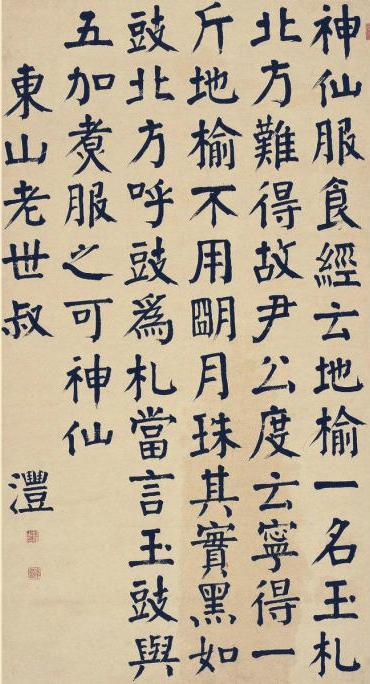 神仙服食經云地榆一名玉札
北方難得故尹公度云寧得一
斤地榆不用朙月珠其實黑如
豉北方呼豉爲札當言玉豉與
五加煑服之可神仙
東山老世叔 灃